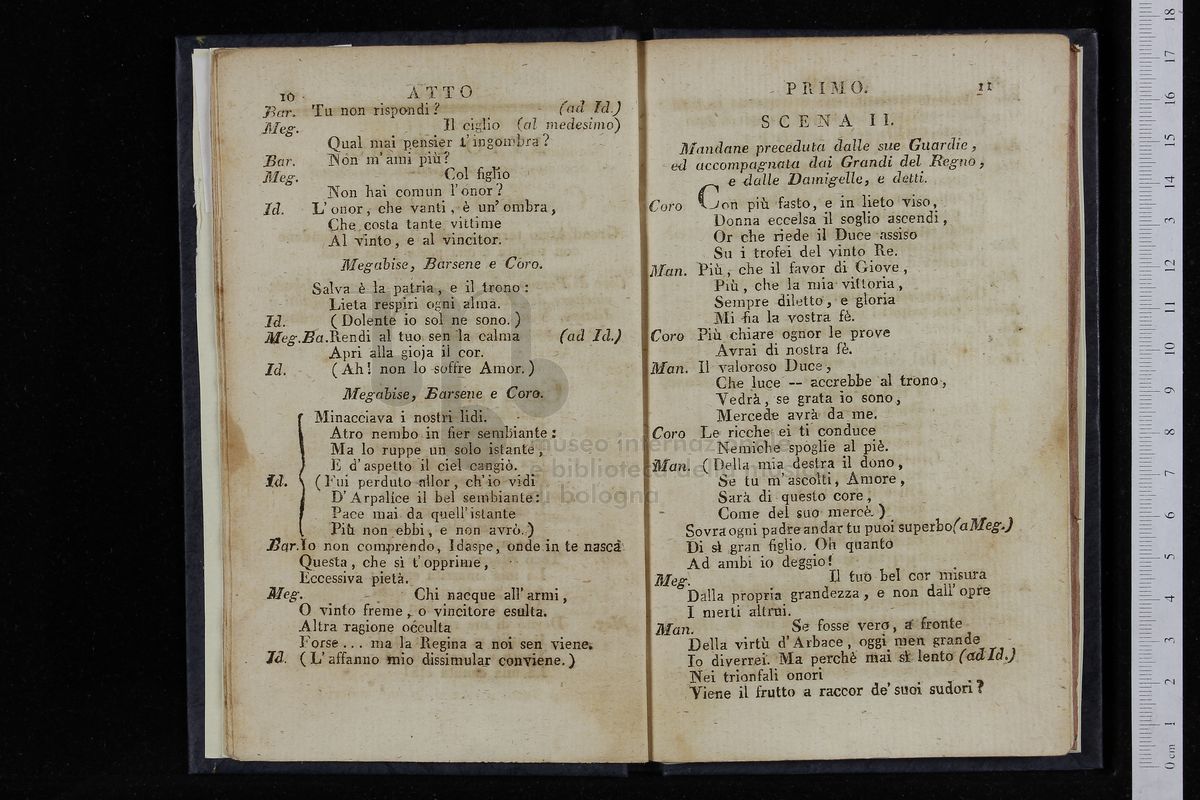 10 ATTO
Bar. Tu non rispondi? (ad Id.)
Meg. Il ciglio (al medesimo)
Qual mai pensier t'ingombra?
Bar. Non m'ami più?
Meg. Col figlio
Non hai comun l'onor?
Id. L'onor, che vanti, è un'ombra,
Che costa tante vittime
Al vinto, e al vincitor.
Megabise, Barsene e Coro.
Salva è la patria, e il trono:
Lieta respiri ogni alma.
Id. (Dolente io sol ne sono.)
Meg.Ba. Rendi al tuo sen la calma (ad Id.)
Apri alla gioja il cor.
Id. (Ah! non lo soffre Amor.)
Megabise, Barsene e Coro.
Minacciava i nostri lidi.
Atro nembo in fier sembiante:
Ma lo ruppe un solo istante,
E d'aspetto il ciel cangiò.
Id. (Fui perduto allor, ch'io vidi
D'Arpalice il bel sembiante:
Pace mai da quell'istante
Più non ebbi, e non avrò.)
Bar. Io non comprendo, Idaspe, onde in te nasca
Questa, che sì t'opprime,
Eccessiva pietà.
Meg. Chi nacque all'armi,
O vinto freme, o vincitore esulta.
Altra ragione occulta
Forse... ma la Regina a noi sen viene.
Id. (L'affanno mio dissimular conviene.)
PRIMO. 11
SCENA II.
Mandane preceduta dalle sue Guardie,
ed accompagnata dai Grandi del Regno,
e dalle Damigelle, e detti.
Coro Con più fasto, e in lieto viso,
Donna eccelsa il soglio ascendi,
Or che riede il Duce assiso
Su i trofei del vinto Re.
Man. Più, che il favor di Giove,
Più, che la mia vittoria,
Sempre diletto, e gloria
Mi fia la vostra fè.
Coro Più chiare ognor le prove
Avrai di nostra fè.
Man. Il valoroso Duce,
Che luce -- accrebbe al trono,
Vedrà, se grata io sono,
Mercede avrà da me.
Coro Le ricche ei ti conduce
Nemiche spoglie al piè.
Man. (Della mia destra il dono,
Se tu m'ascolti, Amore,
Sarà di questo core,
Come del suo mercè.)
Sovra ogni padre andar tu puoi superbo (a Meg.)
Di sì gran figlio. Oh quanto
Ad ambi io deggio!
Meg. Il tuo bel cor misura
Dalla propria grandezza, e non dall'opre
I merti altrui.
Man. Se fosse vero, a fronte
Della virtù d'Arbace, oggi men grande
Io diverrei. Ma perchè mai sì lento (ad Id.)
Nei trionfali onori
Viene il frutto a raccor de' suoi sudori?
museo internazionale
e biblioteca della musica
di bologna
0 cm 1 2 3 4 5 6 7 8 9 10 11 12 13 14 15 16 17 18